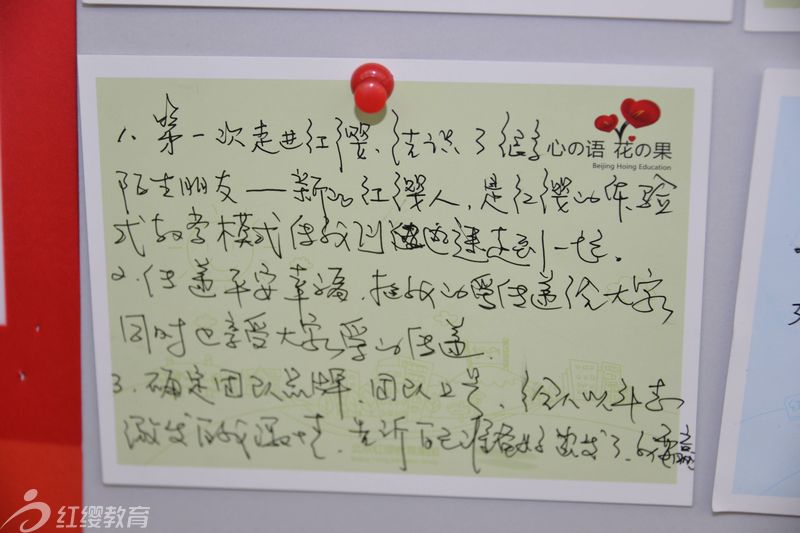 1、第一次走进红缨、结识了很多
心の语 花の果
Beijing Hoing Education
陌生朋友——新的红缨人,是红缨的体验
式教学模式使我们迅速走到一起.
2、传递平安幸福,把我的爱传递给大家
同时也享受大家爱的传递.
3、确定团队品牌,团队口号,给人以斗志
激发自我激情,告诉自己准备好 了,
红缨教育